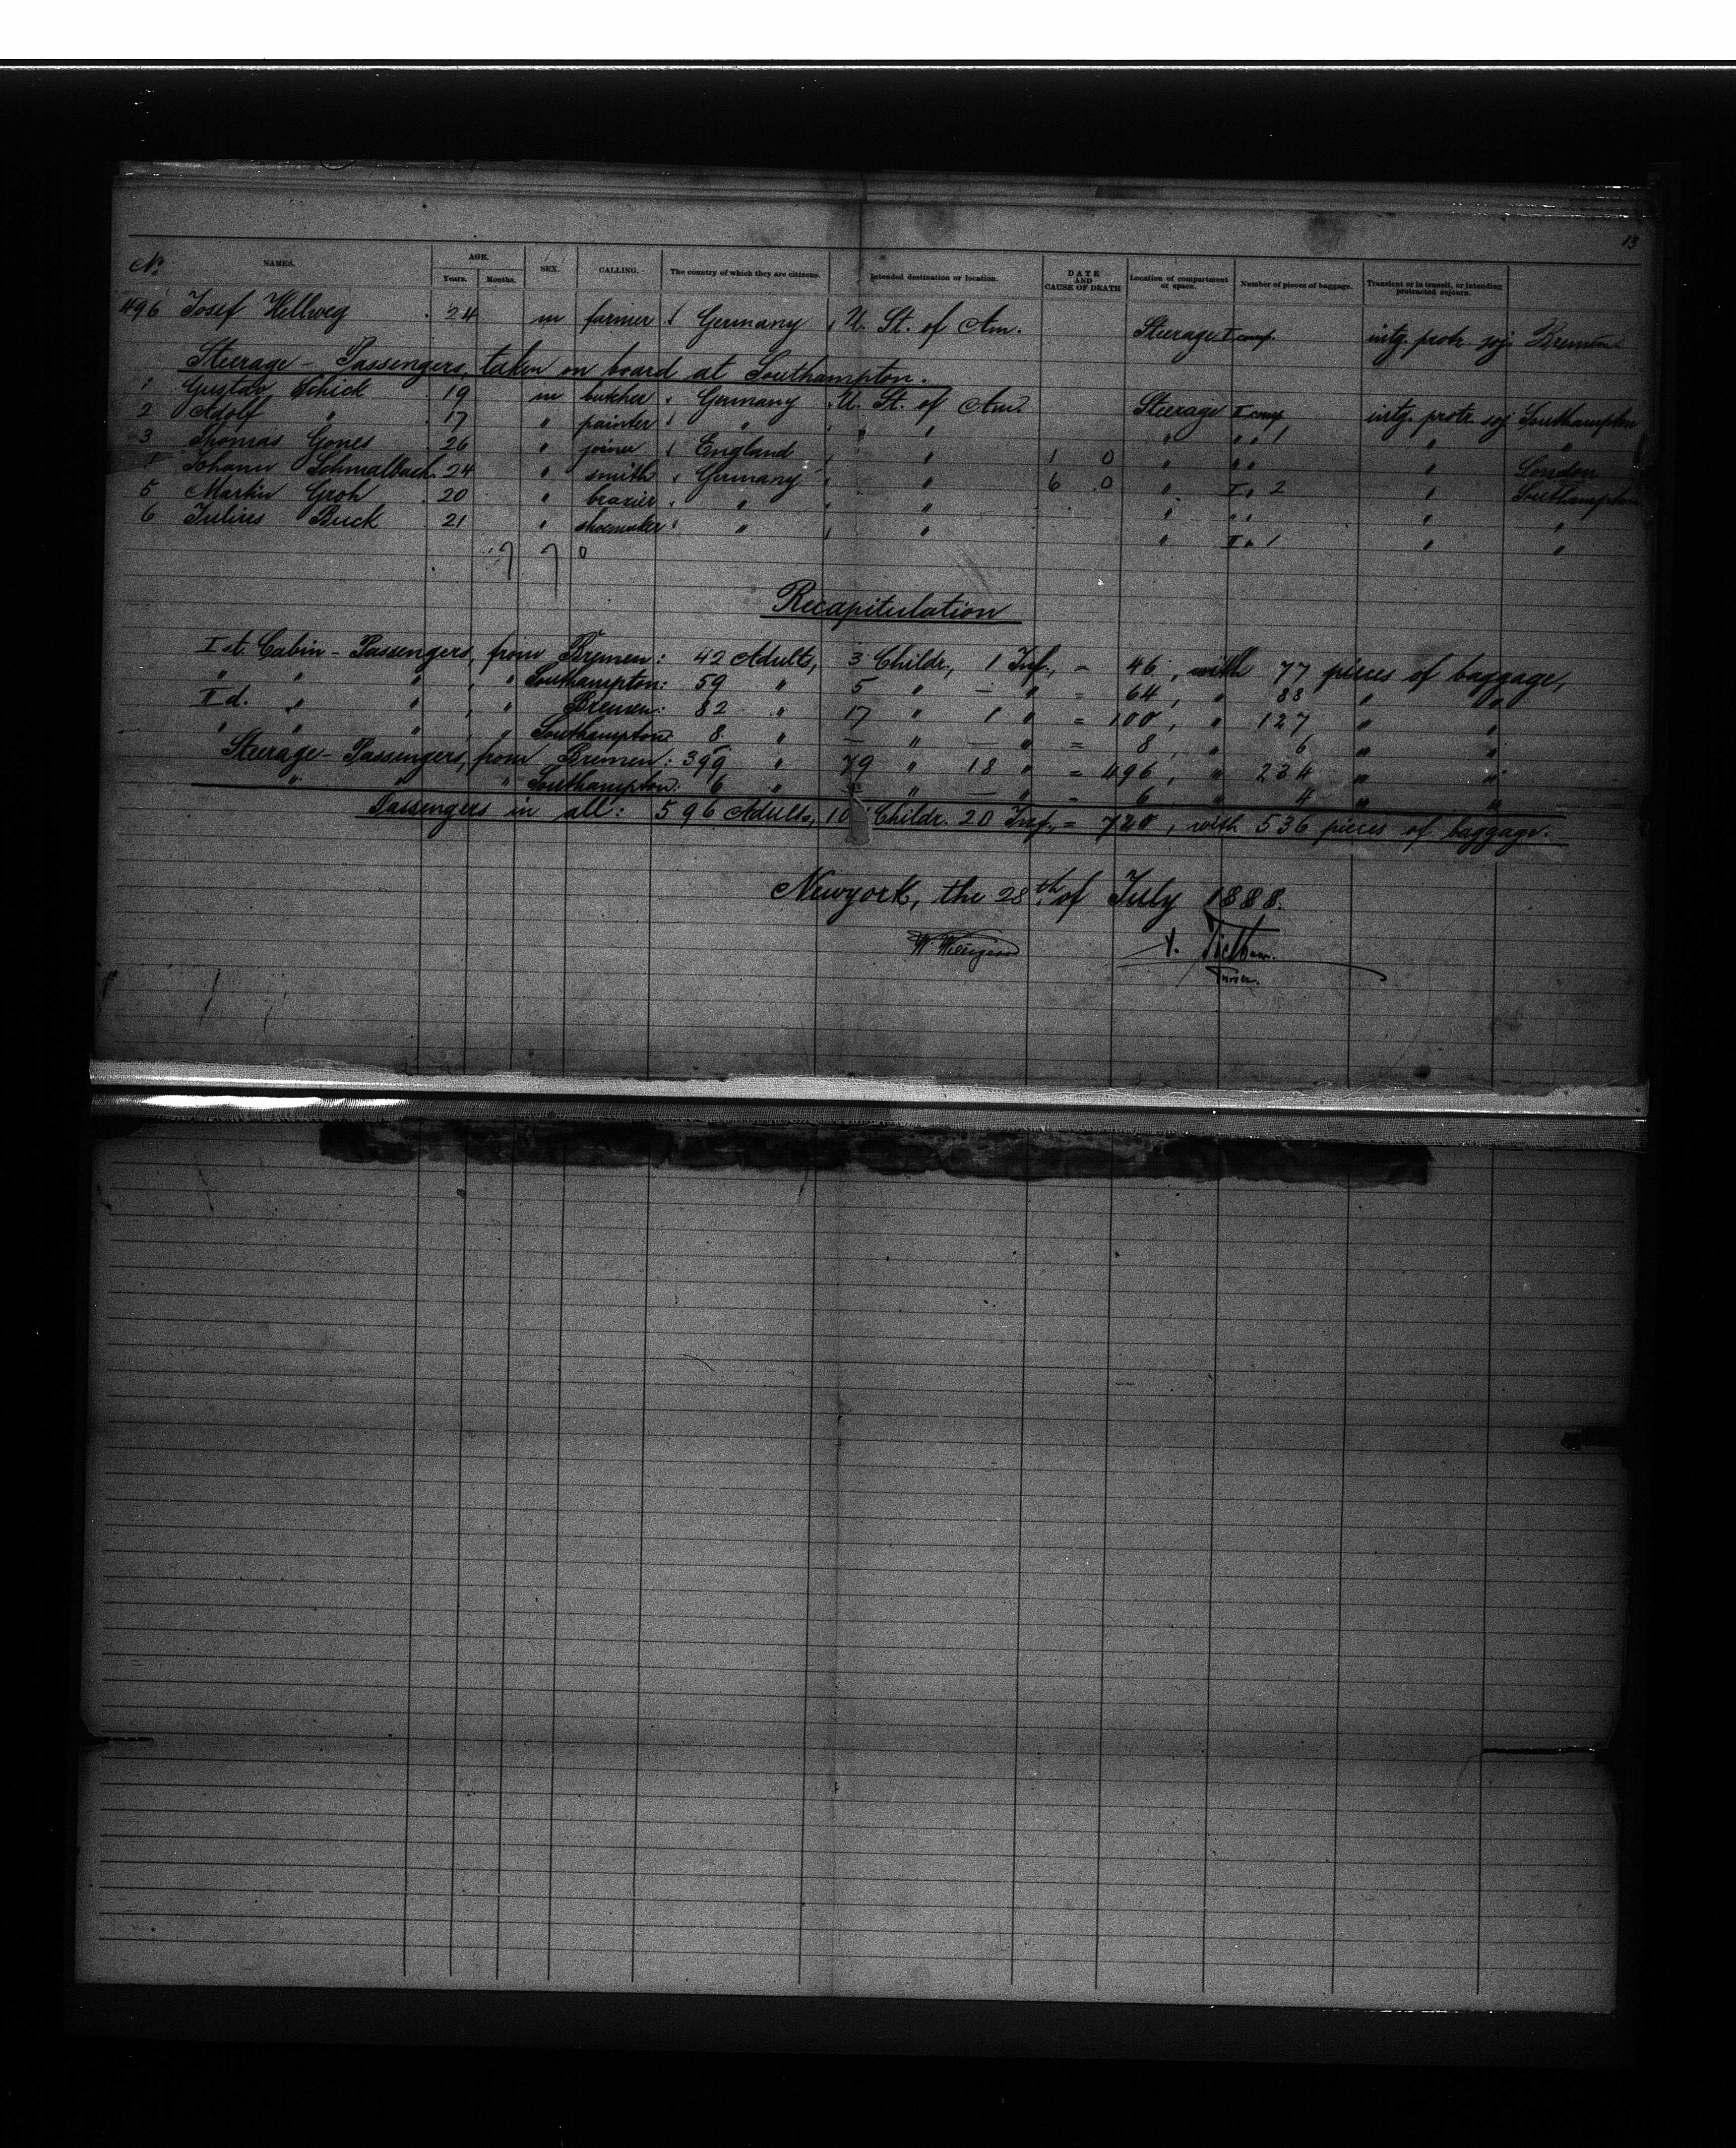 13
No. NAMES. AGE. Years. Months. SEX. CALLING. The country of which they are citizens. Intended destination or location. DATE AND CAUSE OF DEATH Location of compartment or space. Number of pieces of baggage. Transient or in transit, or intending protracted sojourn.
496 Josef Hellweg 24 m farmer Germany U. St. of Am. Steerage I comp. intg. protr. soj. Bremen
Steerage - Passengers, taken on board at Southampton.
1 Gustav Schick 19 m butcher Germany U. St. of Am. Steerage II comp. intg. protr. soj. Southampton
2 Adolf " 17 " painter " " " " " 1 " "
3 Thomas Gones 26 " joiner England " 1 0 " " " " London
4 Johann Schmalbach 24 " smith Germany " 6 0 " I " 2 " Southampton
5 Martin Groh 20 " brazier " " " " " " "
6 Julius Buck 21 " shoemaker " " " II " 1 " "
7 7 0
Recapitulation
I st. Cabin - Passengers, from Bremen: 42 Adults, 3 Childr., 1 Inf., = 46, with 77 pieces of baggage,
" " " , " Southampton: 59 " 5 " — " = 64, " 88 " "
II d. " " , " Bremen: 82 " 17 " 1 " = 100, " 127 " "
" " " , " Southampton: 8 " — " — " = 8, " 6 " "
Steerage - Passengers, from Bremen: 399 " 79 " 18 " = 496, " 234 " "
" " " Southampton: 6 " " — " = 6 " 4 " "
Passengers in all: 596 Adults, 10 Childr. 20 Inf., = 720, with 536 pieces of baggage.
Newyork, the 28th of July 1888.